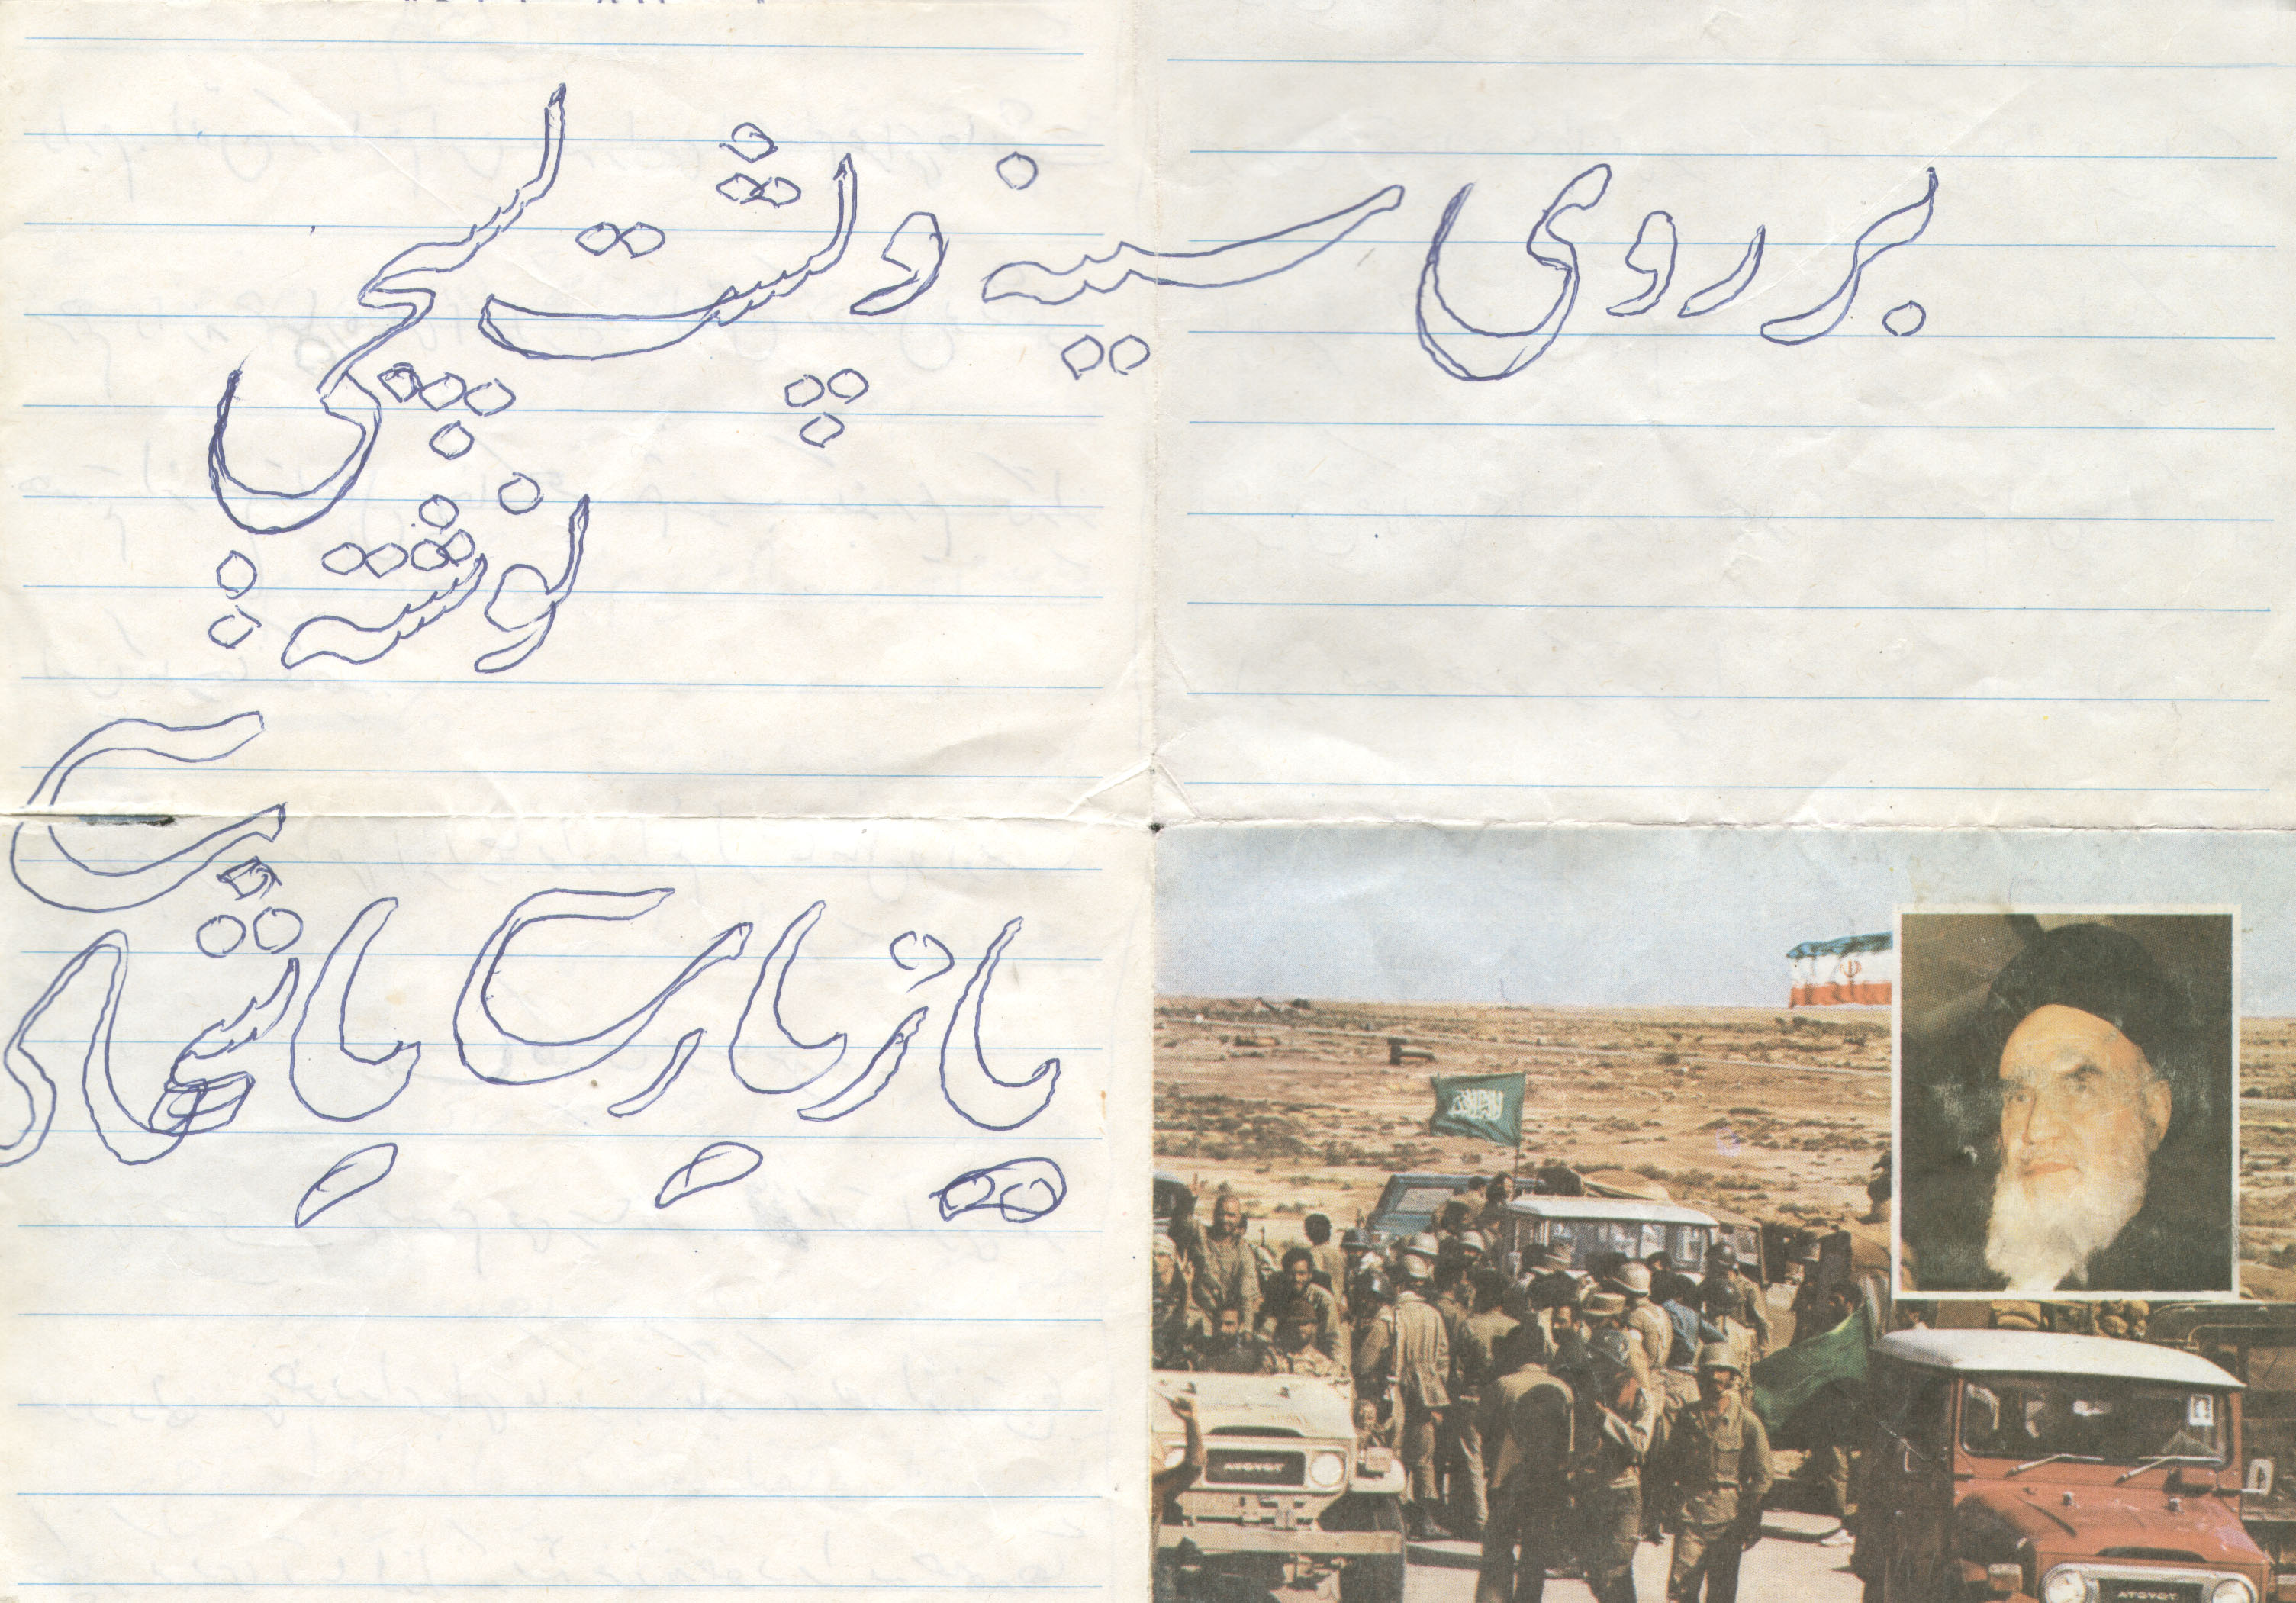 بر روی سینه و پشت بسیجی
نوشته :
یا زیارت یا شهادت
ATOYOT
ATOYOT